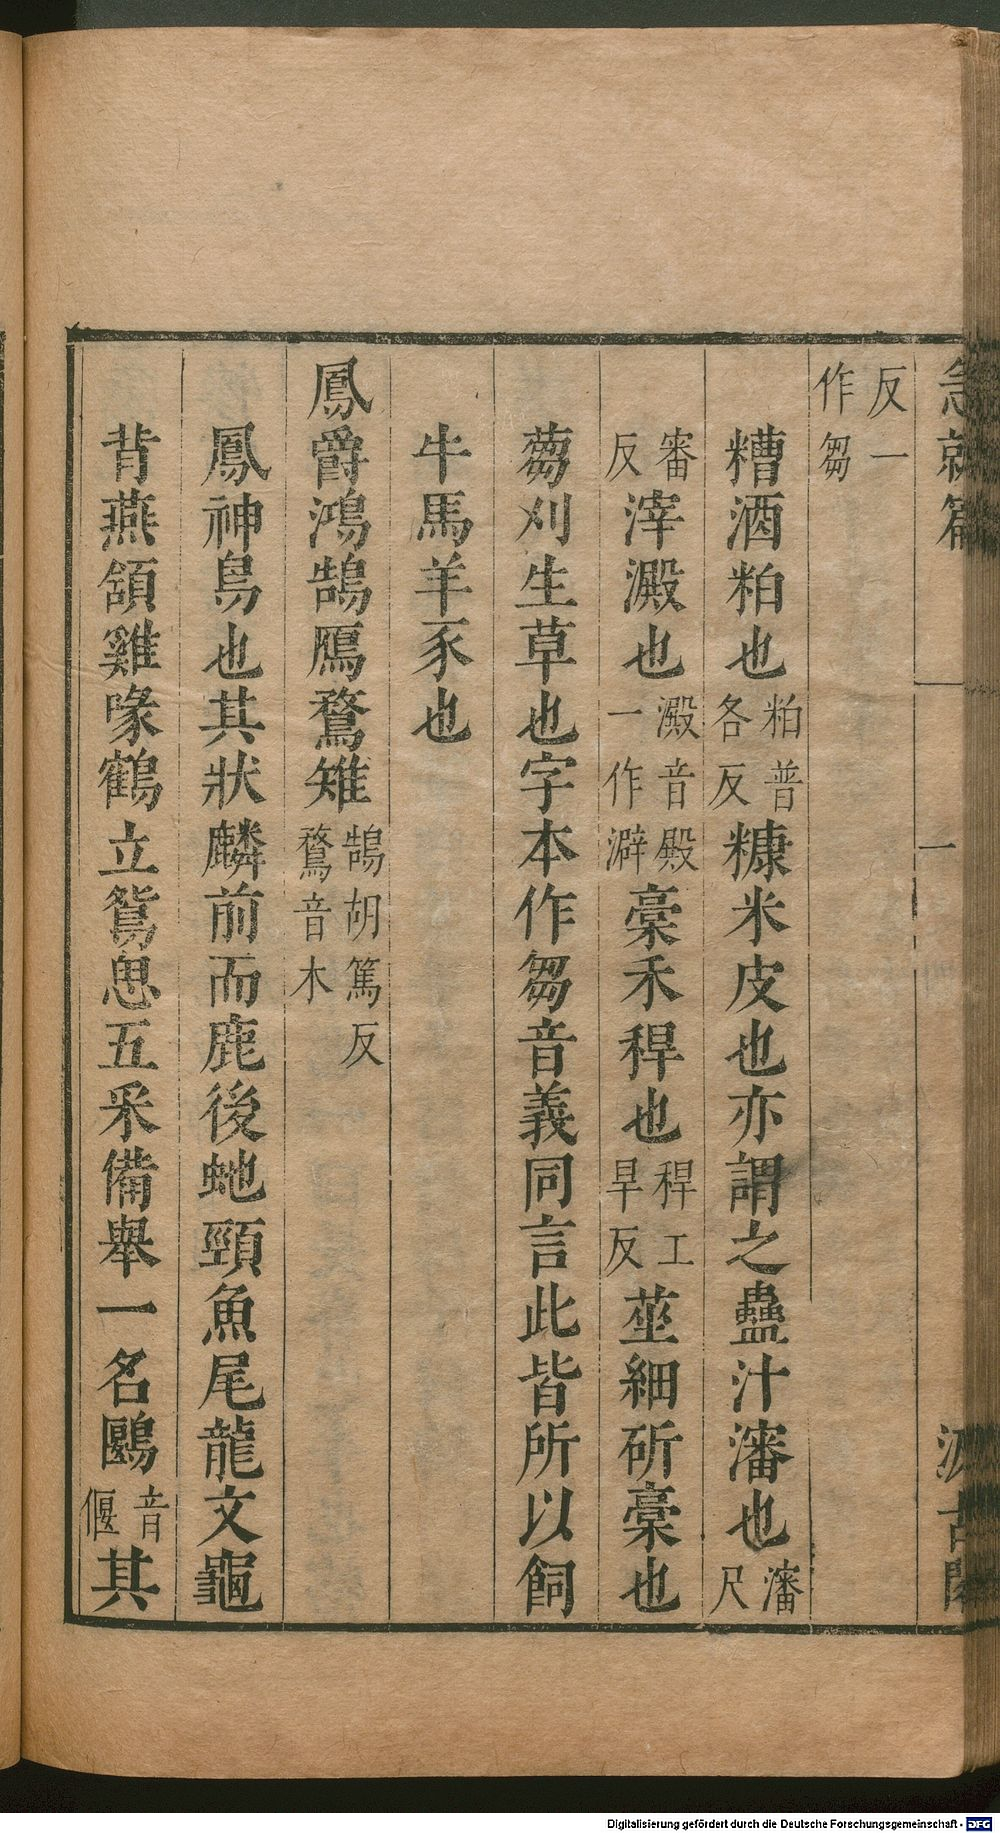 急就篇 一 汲古閣
反一作芻
糟酒粕也粕普各反糠米皮也亦謂之蠱汁瀋也瀋尺
審反滓澱也澱音殿一作澼稾禾稈也稈工旱反莝細斫稾也
蒭刈生草也字本作芻音義同言此皆所以飼
牛馬羊豕也
鳳爵鴻鵠鴈鶩雉鵠胡篤反鶩音木
鳳神鳥也其狀麟前而鹿後蛇頸魚尾龍文龜
背燕頷雞喙鶴立鴛思五釆備舉一名鶠音偃其
Digitalisierung gefördert durch die Deutsche Forschungsgemeinschaft - DFG